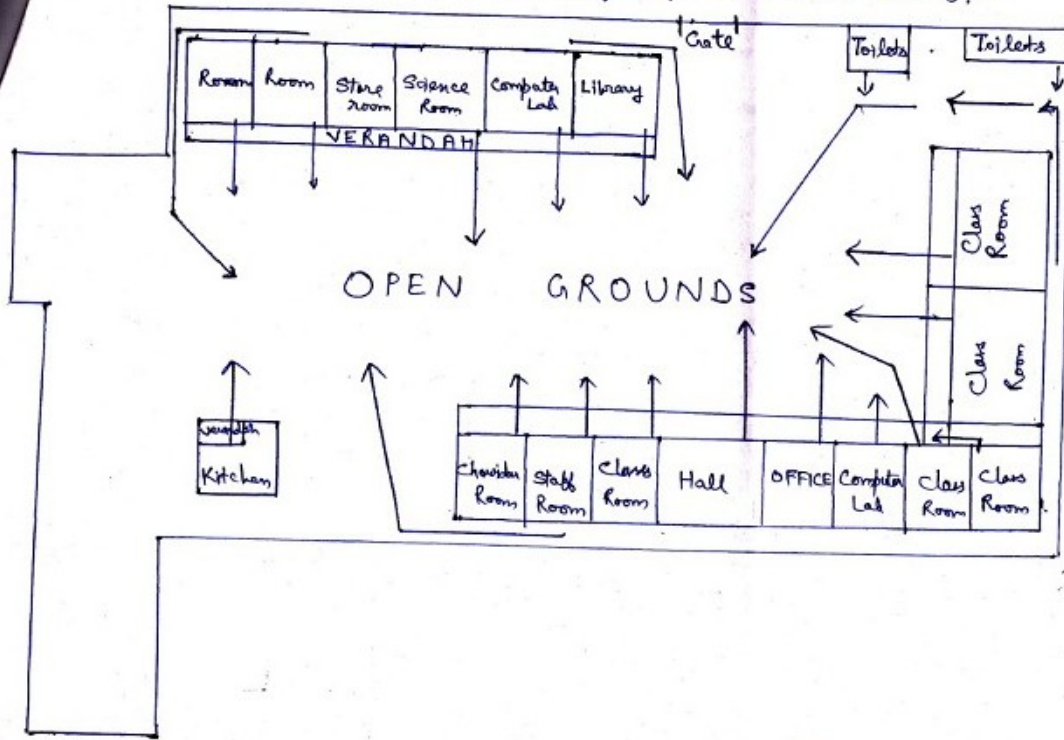 Gate
Toilets
Toilets
Room
Room
Store room
Science Room
Computer Lab
Library
VERANDAH
Class Room
OPEN GROUNDS
Class Room
Kitchen
Room
Staff Room
Class Room
Hall
OFFICE
Computer Lab
Class Room
Class Room